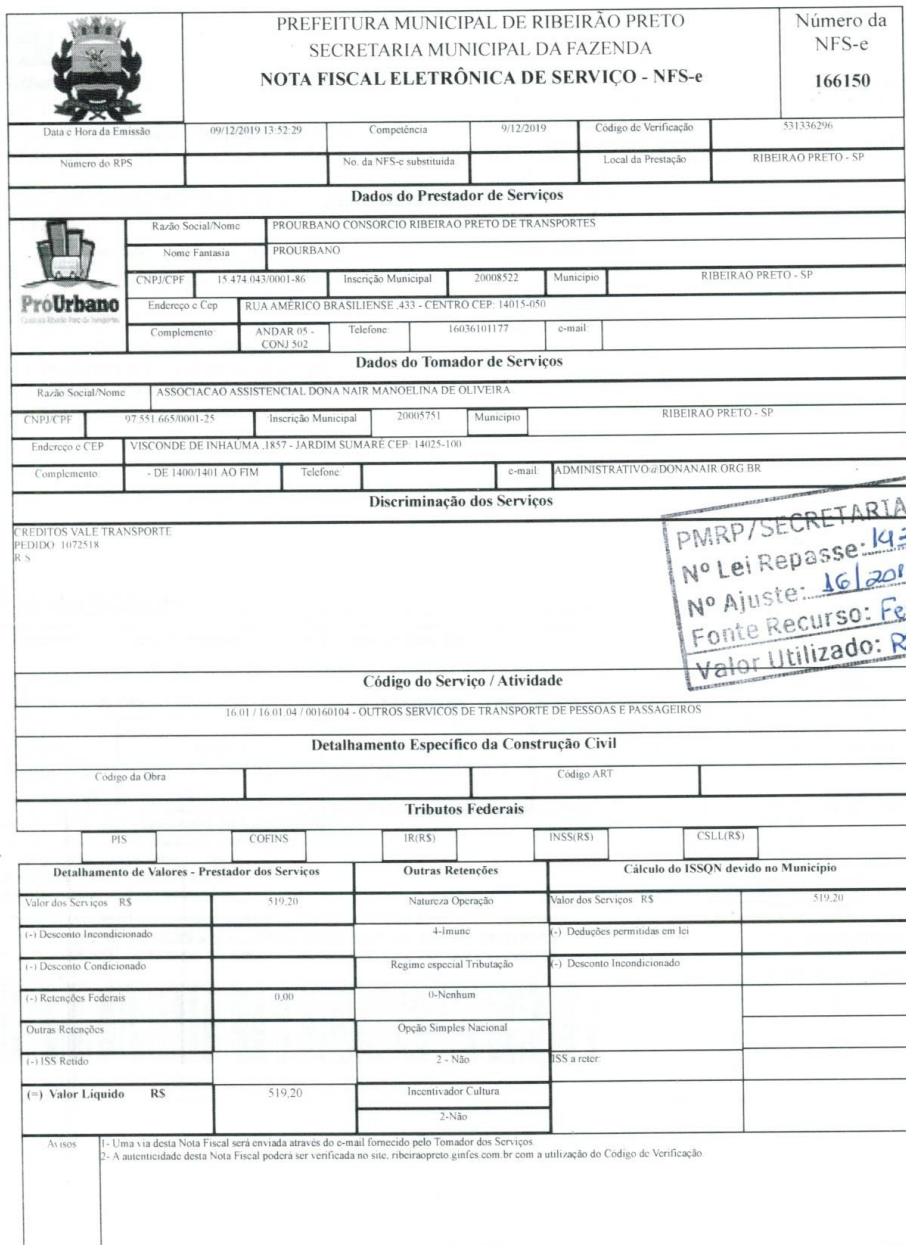 PREFEITURA MUNICIPAL DE RIBEIRÃO PRETO
SECRETARIA MUNICIPAL DA FAZENDA
NOTA FISCAL ELETRÔNICA DE SERVIÇO - NFS-e
Número da
NFS-e
166150
Data e Hora da Emissão 09/12/2019 13:52:29 Competência 9/12/2019 Código de Verificação 531336296
Número do RPS No. da NFS-e substituída Local da Prestação RIBEIRAO PRETO - SP
Dados do Prestador de Serviços
PróUrbano
Razão Social/Nome PROURBANO CONSORCIO RIBEIRAO PRETO DE TRANSPORTES
Nome Fantasia PROURBANO
CNPJ/CPF 15.474.043/0001-86 Inscrição Municipal 20008522 Município RIBEIRAO PRETO - SP
Endereço e Cep RUA AMÉRICO BRASILIENSE ,433 - CENTRO CEP: 14015-050
Complemento: ANDAR 05 - CONJ 502 Telefone: 16036101177 e-mail:
Dados do Tomador de Serviços
Razão Social/Nome ASSOCIACAO ASSISTENCIAL DONA NAIR MANOELINA DE OLIVEIRA
CNPJ/CPF 97.551.665/0001-25 Inscrição Municipal 20005751 Município RIBEIRAO PRETO - SP
Endereço e CEP VISCONDE DE INHAÚMA ,1857 - JARDIM SUMARÉ CEP: 14025-100
Complemento: - DE 1400/1401 AO FIM Telefone: e-mail: ADMINISTRATIVO@DONANAIR.ORG.BR
Discriminação dos Serviços
CREDITOS VALE TRANSPORTE
PEDIDO 1072518
R S
PMRP/SECRETARIA
Nº Lei Repasse:
Nº Ajuste: 16/201
Fonte Recurso: Fe
Valor Utilizado: R
Código do Serviço / Atividade
16.01 / 16.01.04 / 00160104 - OUTROS SERVICOS DE TRANSPORTE DE PESSOAS E PASSAGEIROS
Detalhamento Específico da Construção Civil
Código da Obra Código ART
Tributos Federais
PIS COFINS IR(R$) INSS(R$) CSLL(R$)
Detalhamento de Valores - Prestador dos Serviços Outras Retenções Cálculo do ISSQN devido no Município
Valor dos Serviços R$ 519,20 Natureza Operação Valor dos Serviços R$ 519,20
(-) Desconto Incondicionado 4-Imune (-) Deduções permitidas em lei
(-) Desconto Condicionado Regime especial Tributação (-) Desconto Incondicionado
(-) Retenções Federais 0,00 0-Nenhum
Outras Retenções Opção Simples Nacional
(-) ISS Retido 2 - Não ISS a reter:
(=) Valor Líquido R$ 519,20 Incentivador Cultura
2-Não
Avisos 1- Uma via desta Nota Fiscal será enviada através do e-mail fornecido pelo Tomador dos Serviços.
2- A autenticidade desta Nota Fiscal poderá ser verificada no site, ribeiraopreto.ginfes.com.br com a utilização do Código de Verificação.